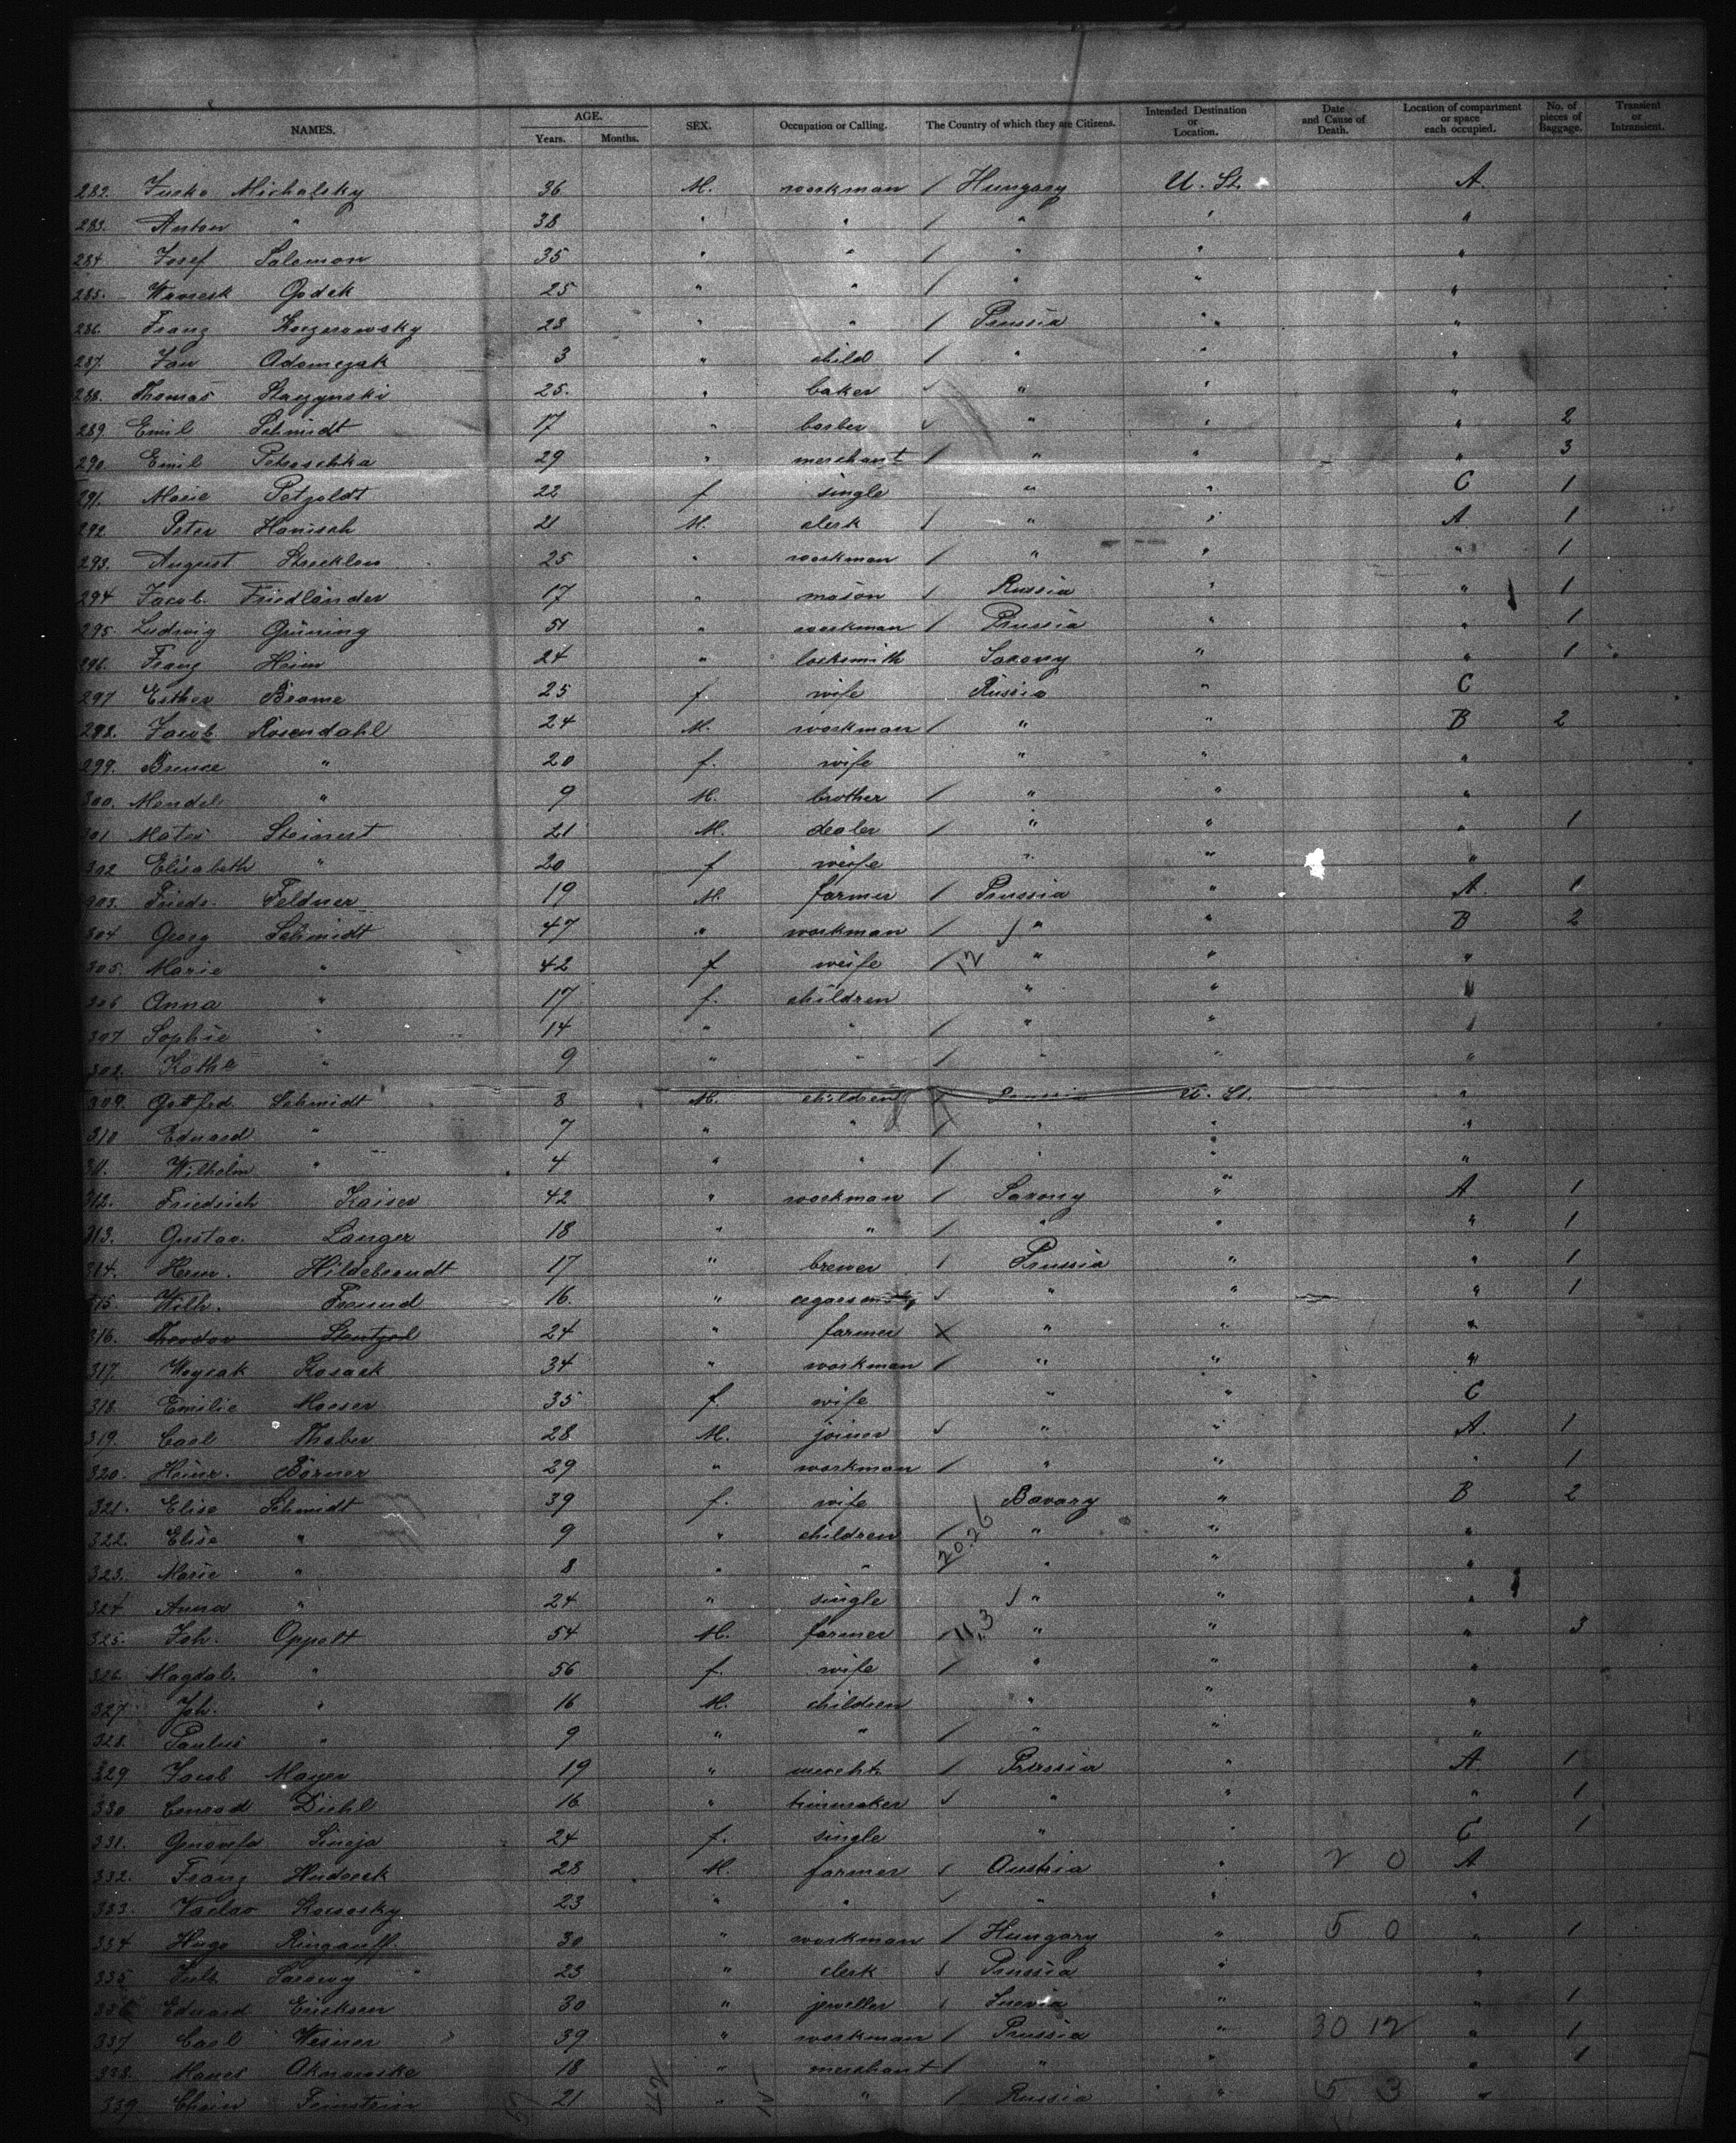 NAMES. AGE. Years. Months. SEX. Occupation or Calling. The Country of which they are Citizens. Intended Destination or Location. Date and Cause of Death. Location of compartment or space each occupied. No. of pieces of Baggage. Transient or Intransient.
282. Michalsky 36 M. workman / Hungary U. St. A.
283. Anton " 38 " " / " " "
284 Josef Salomon 35 " " / " " "
285. Godek 25 " " / " " "
286. Franz 23 " " / Prussia " "
287. Jan Adamczak 3 " child / " " "
288. Thomas Staczynski 25. " baker ✓ " " "
289. Emil Schmidt 17 " barber ✓ " " " 2
290. Emil Petraschka 29 " merchant / " " " 3
291. Marie Petzoldt 22 f single " " C 1
292. Peter Hanisch 21 M. clerk / " " A. 1
293. August 25 " workman / " " " 1
294 Jacob Friedländer 17 " mason / Russia " " 1
295. Ludwig Grüning 51 " workman / Prussia " " 1
296. Franz Heim 24 " locksmith Saxony " " 1
297 Esther Brame 25 f. wife Russia " C
298. Jacob Rosendahl 24 M. workman / " " B 2
299. " 20 f. wife " " "
300. Mendel " 9 M. brother / " " "
301 Steinert 21 M. dealer / " " " 1
302 Elisabeth " 20 f weife " " "
303. Friedr. Feldner 19 M. farmer / Prussia " A. 1
304 Georg Schmidt 47 " workman / " " B 2
305. Marie " 42 f weife / 12 " " "
306 Anna " 17 f. children " " "
307 Sophie " 14 " " / " " "
308. Käthe " 9 " " / " " "
309. Gottfrd. Schmidt 8 M. children / Prussia U. St. "
310 Eduard " 7 " " / " " "
311. Wilhelm " 4 " " / " " "
312. Friedrich Kaiser 42 " workman / Saxony " A 1
313. Gustav. Langer 18 " " / " " " 1
314. Herm. Hildebrandt 17 " brewer / Prussia " " 1
315. Wilh. Freund 16. " ✓ " " " 1
316. Theodor Stentzel 24 " farmer X " " "
317. Kosack 34 " workman / " " "
318. Emilie Moeser 35 f. wife " " C
319. Carl Thaber 28 M. joiner ✓ " " A. 1
320. Heinr. Börner 29 " workman / " " " 1
321. Elise Schmidt 39 f. wife Bavary " B 2
322. Elise " 9 " children / 20.26 " " "
323. Marie " 8 " " " " "
324 Anna " 24 " single " " "
325. Joh. Oppelt 54 M. farmer / 11.3 " " " 3
326. Magdal. " 56 f. wife / " " "
327. Joh. " 16 M. children " " "
328. Paulus " 9 " " / " " "
329 Jacob Mayer 19 " mercht. / Prussia " A. 1
330 Conrad Diehl 16 " ✓ " " " 1
331. Genovefa 24 f. single " " C 1
332. Franz Hudecek 28 M. farmer / Austria " 2 0 A
333. Vaclav 23 " " ✓ " " "
334 Hugo Ringauff. 30 " workman / Hungary " 5 0 " 1
335 Jul. 23 " clerk ✓ Prussia " "
336 Eduard Ericksen 30 " jeweller / " " 1
337 Carl Wesner 39 " workman / Prussia " 30 12 " 1
338. 18 " merchant / " " " 1
339 Chain Feinstein 21 " " / Russia " 5 3 "